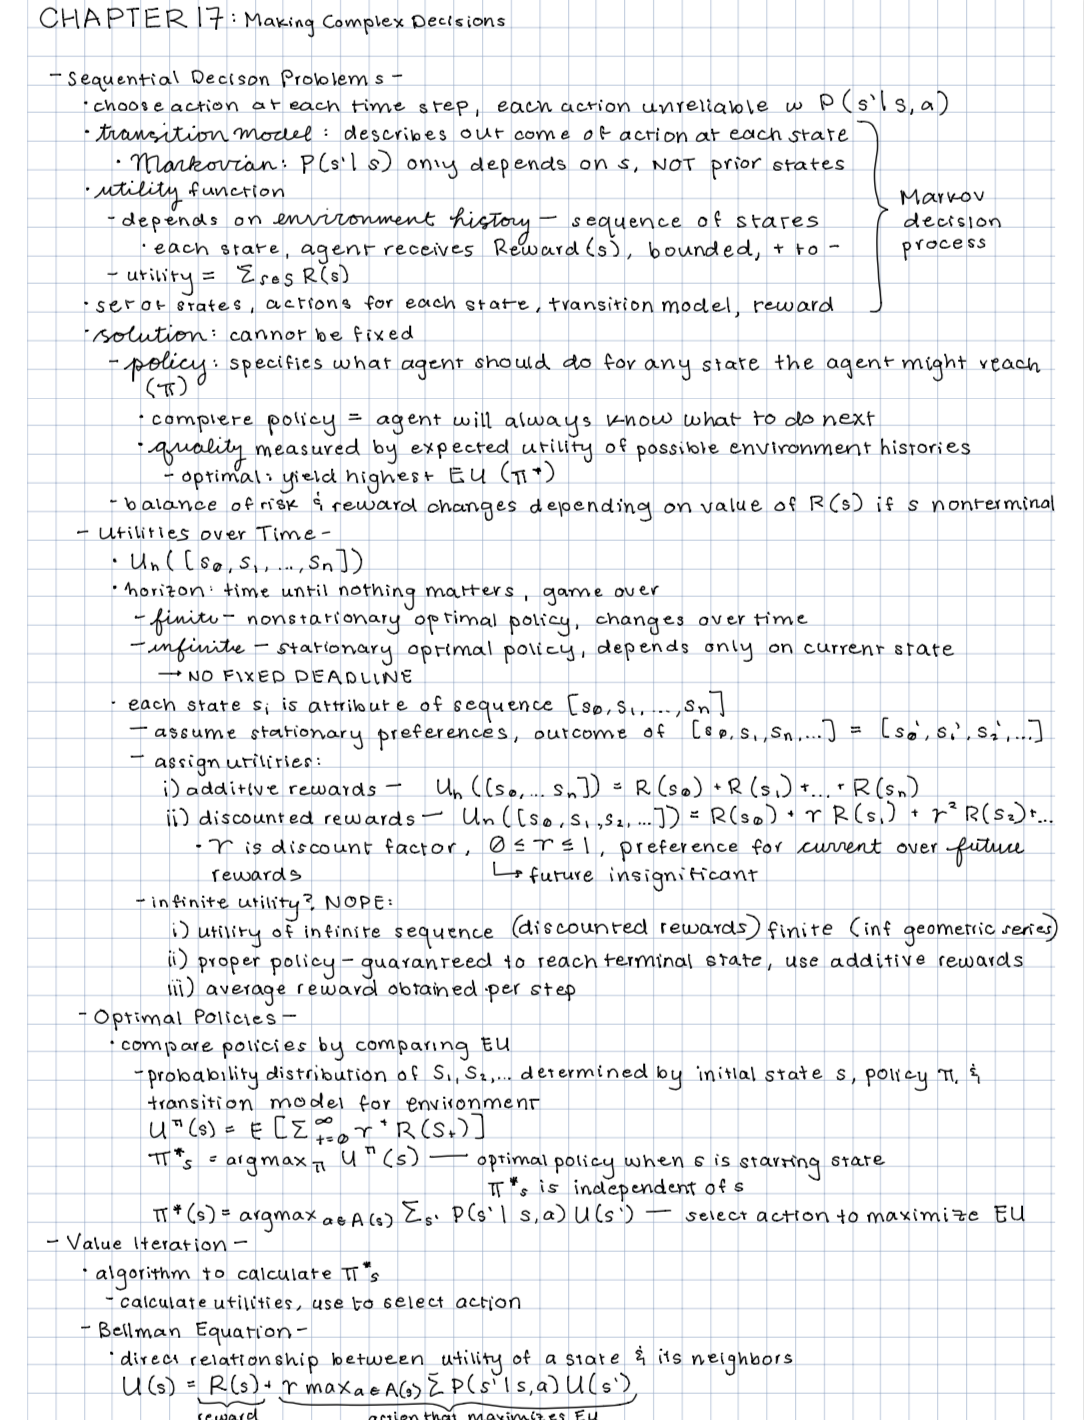 CHAPTER 17: Making Complex Decisions
- Sequential Decison Problems -
· choose action at each time step, each action unreliable w P(s'|s,a)
· transition model: describes outcome of action at each state
· Markovian: P(s'|s) only depends on s, NOT prior states
· utility function
- depends on environment history - sequence of states
· each state, agent receives Reward(s), bounded, + to -
- utility = Σ s∈S R(s)
· set of states, actions for each state, transition model, reward
Markov
decision
process
· solution: cannot be fixed
- policy: specifies what agent should do for any state the agent might reach
(π)
· complete policy = agent will always know what to do next
· quality measured by expected utility of possible environment histories
- optimal: yield highest EU (π*)
- balance of risk & reward changes depending on value of R(s) if s nonterminal
- Utilities over Time -
· Uh([s0, s1, ..., sn])
· horizon: time until nothing matters, game over
- finite - nonstationary optimal policy, changes over time
- infinite - stationary optimal policy, depends only on current state
→ NO FIXED DEADLINE
· each state si is attribute of sequence [s0, s1, ..., sn]
- assume stationary preferences, outcome of [s0, s1, sn, ...] = [s0', s1', s2', ...]
- assign utilities:
i) additive rewards - Uh([s0, ... sn]) = R(s0) + R(s1) + ... + R(sn)
ii) discounted rewards - Un([s0, s1, s2, ...]) = R(s0) + γ R(s1) + γ² R(s2) + ...
· γ is discount factor, 0 ≤ γ ≤ 1, preference for current over future
rewards ↳ future insignificant
- infinite utility? NOPE:
i) utility of infinite sequence (discounted rewards) finite (inf geometric series)
ii) proper policy - guaranteed to reach terminal state, use additive rewards
iii) average reward obtained per step
- Optimal Policies -
· compare policies by comparing EU
- probability distribution of S1, S2, ... determined by initial state s, policy π, &
transition model for environment
U^π(s) = E [Σ^∞ t=0 γ^t R(St)]
π*s = argmax π U^π(s) — optimal policy when s is starting state
π*s is independent of s
π*(s) = argmax a∈A(s) Σs' P(s'|s,a) U(s') — select action to maximize EU
- Value Iteration -
· algorithm to calculate π*s
- calculate utilities, use to select action
- Bellman Equation -
· direct relationship between utility of a state & its neighbors
U(s) = R(s) + γ max a∈A(s) Σ P(s'|s,a) U(s')
reward action that maximizes EU